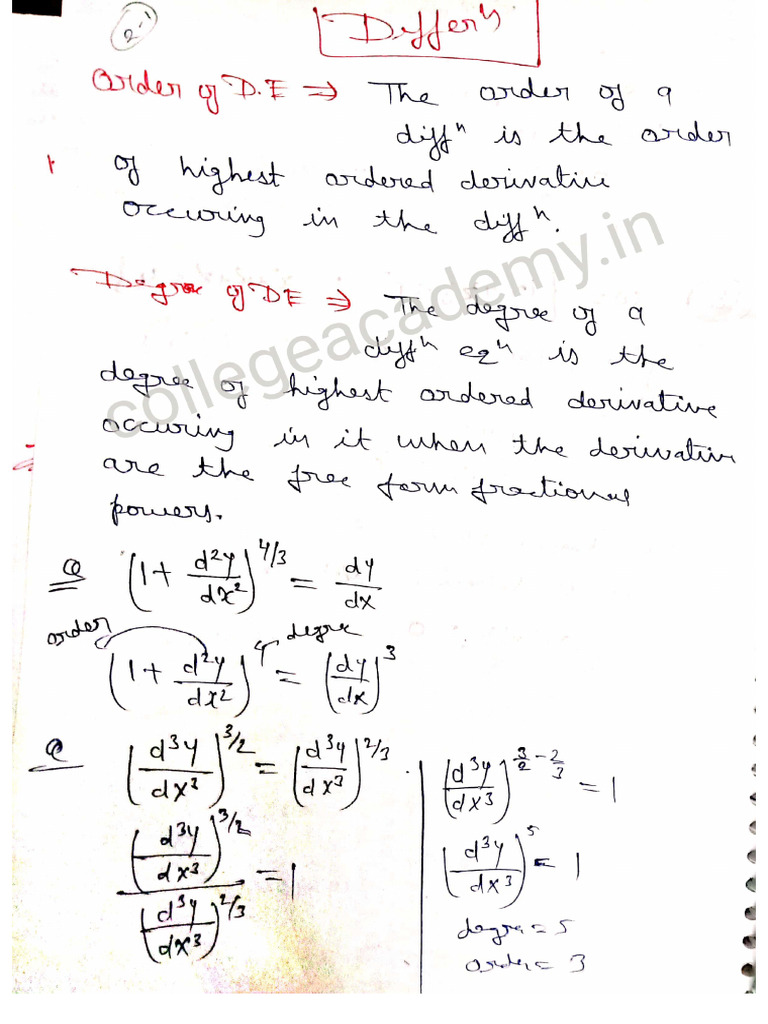 2-1
Differⁿ
Order of D.E ⇒ The order of a
diffⁿ is the order
of highest ordered derivative
occuring in the diffⁿ.
collegeacademy.in
Degree of DE ⇒ The degree of a
diffⁿ eqⁿ is the
degree of highest ordered derivative
occuring in it when the derivative
are the free form fractional
powers.
Q (1 + d²y/dx²)^4/3 = dy/dx
order degree
(1 + d²y/dx²)^4 = (dy/dx)^3
Q (d³y/dx³)^3/2 = (d³y/dx³)^2/3
(d³y/dx³)^3/2 / (d³y/dx³)^2/3 = 1
(d³y/dx³)^3/2 - 2/3 = 1
(d³y/dx³)^5 = 1
degree = 5
order = 3